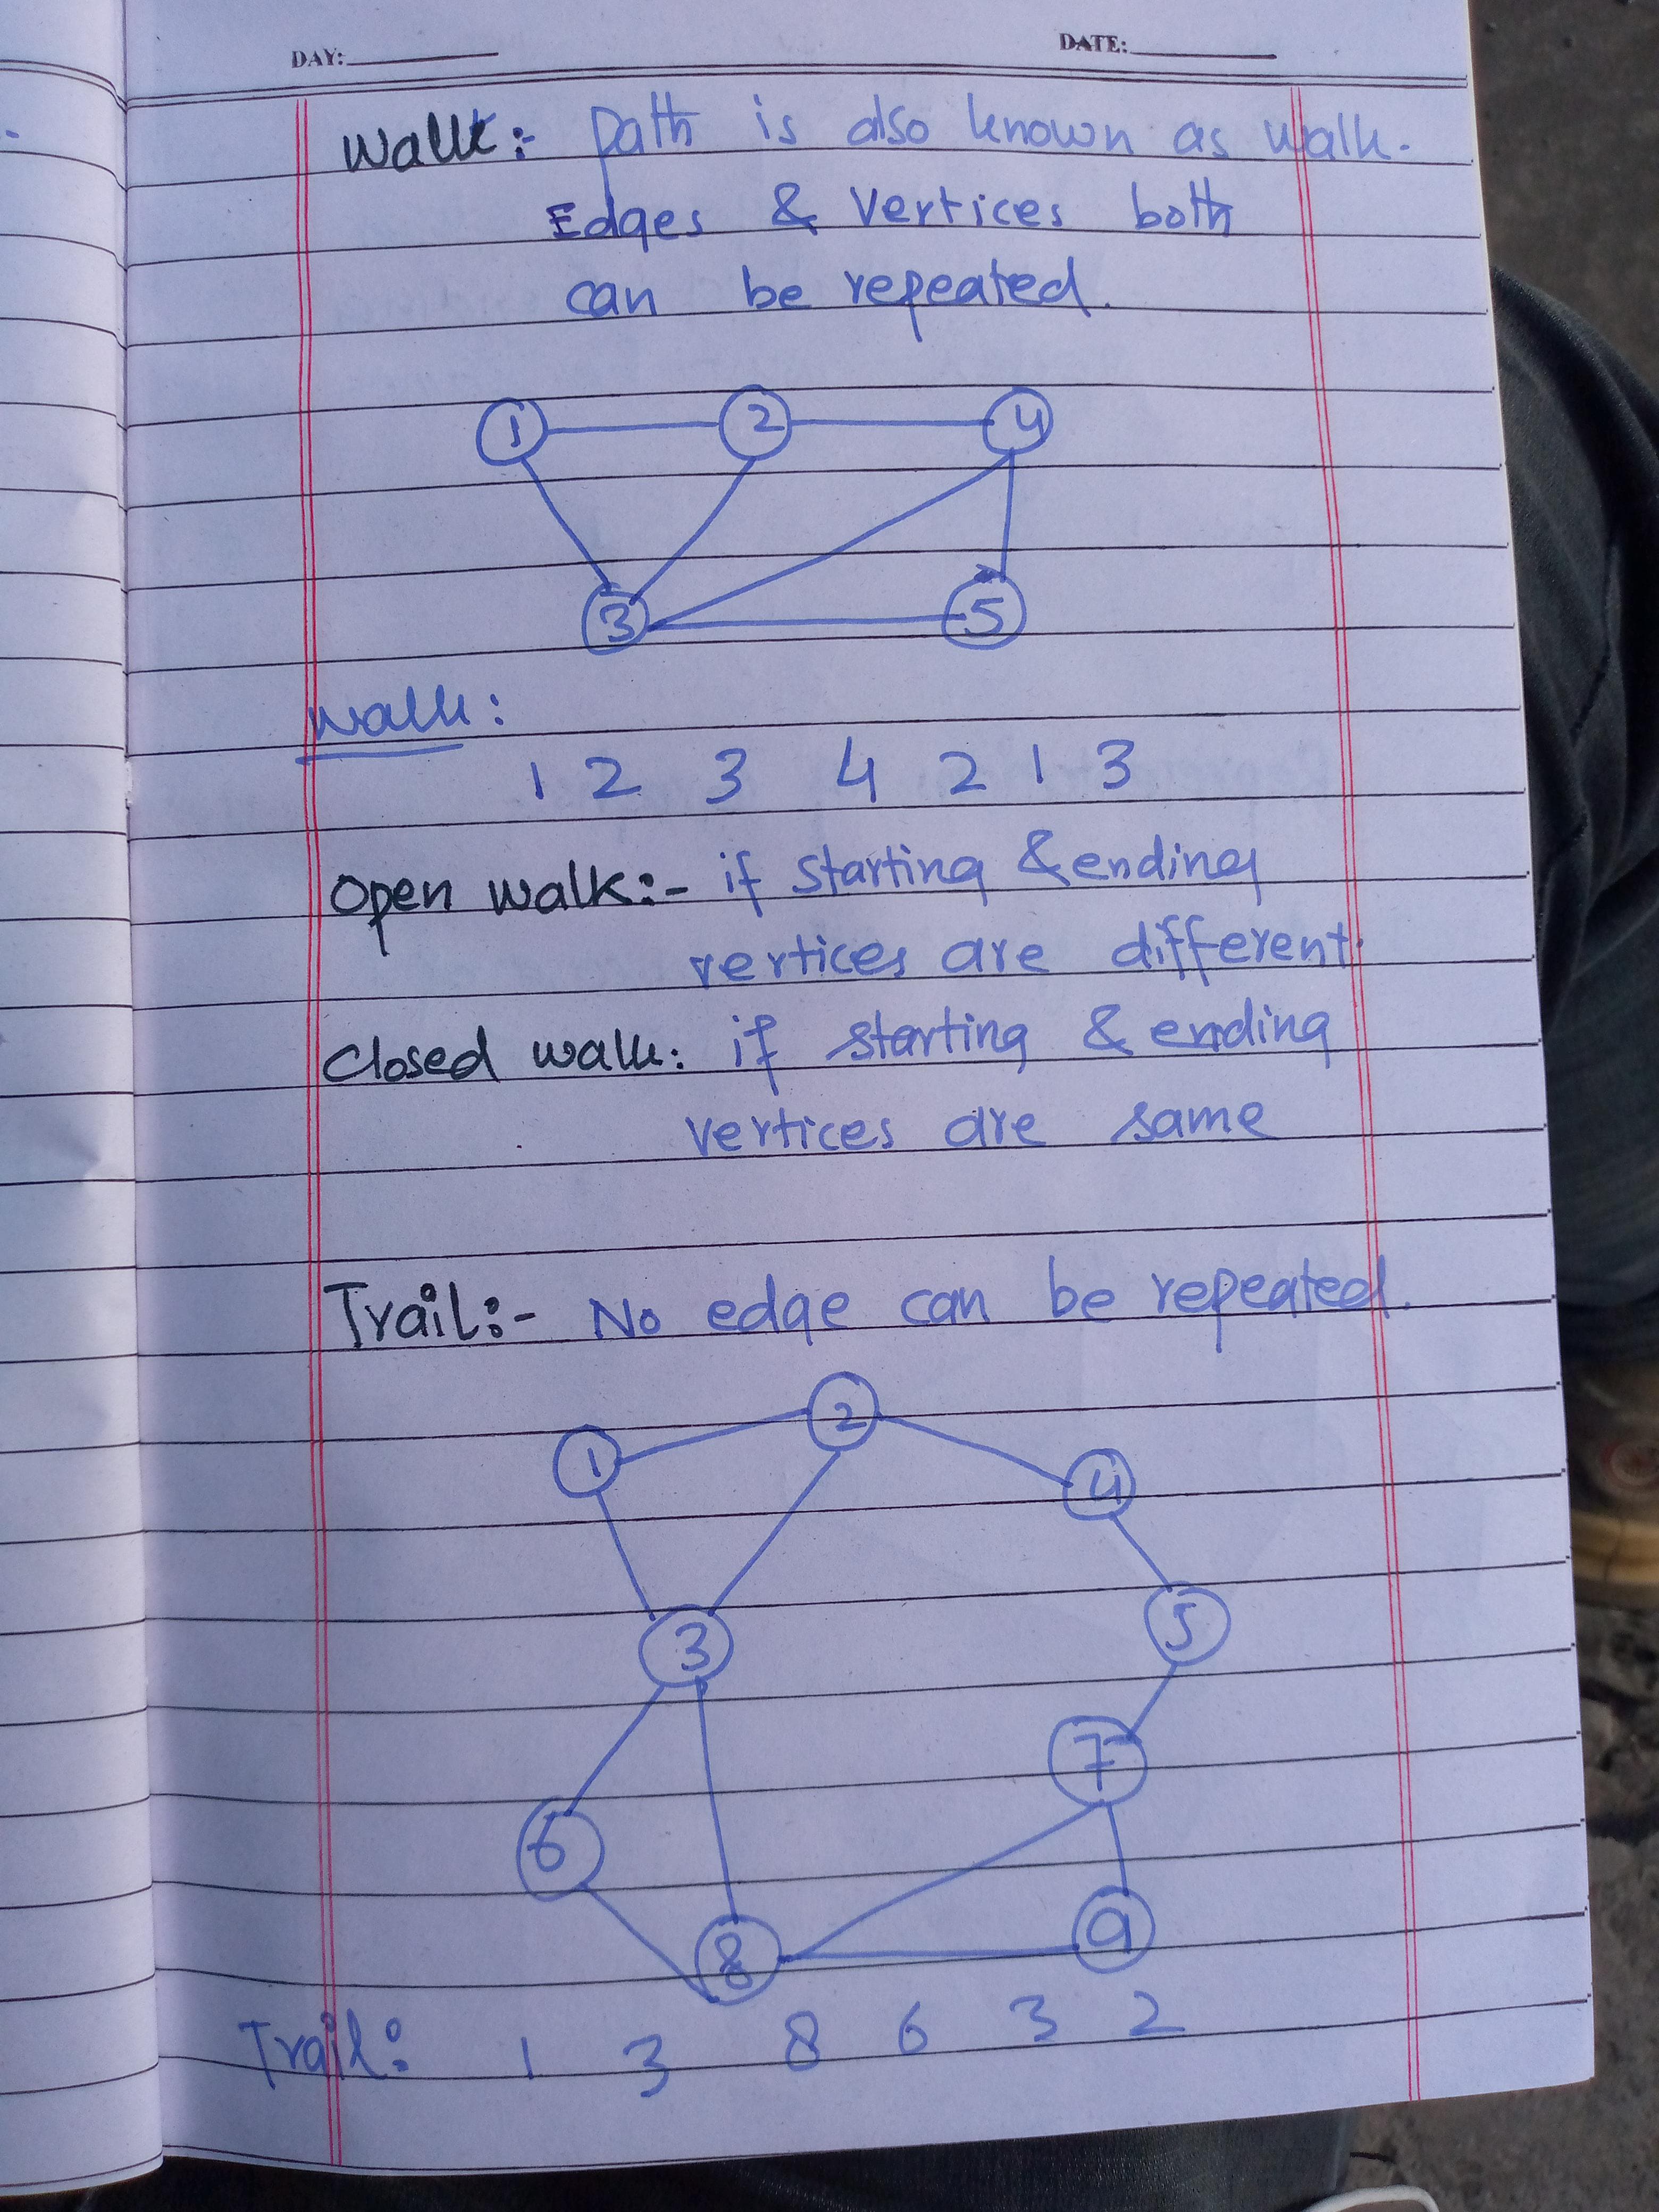 DAY: DATE:
Walk:- Path is also known as walk.
Edges & Vertices both
can be repeated.
1 2 4
3 5
Walk:
1 2 3 4 2 1 3
Open walk:- if starting & ending
vertices are different.
Closed walk: if starting & ending
vertices are same
Trail:- No edge can be repeated.
2
1
4
5
3
7
6
9
8
Trail: 1 3 8 6 3 2